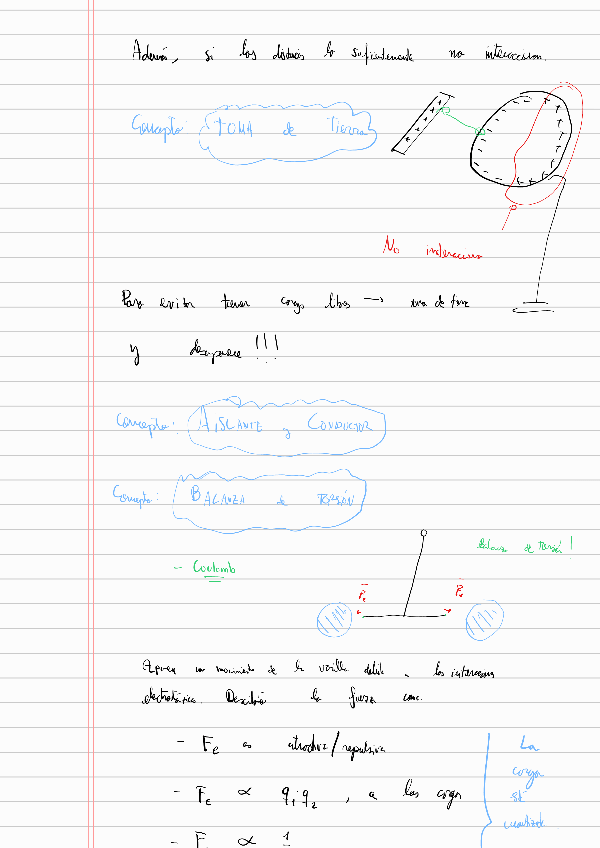 Además, si los distancias lo suficientemente no interaccionan.
Concepto: TOMA de Tierra
No interacciona
Para evitar tener carga libre → toma de tierra
y desaparece!!!
Concepto: AISLANTE y CONDUCTOR
Concepto: BALANZA de TORSIÓN
Balanza de Torsión!
- Coulomb
Fe Fe
un movimiento de la varilla debido a las interacciones
electrostática. Describió la fuerza como:
- Fe es atractiva/repulsiva
- Fe ∝ q1 q2, a las cargas
- F ∝ 1
La
carga
está
cuantizada